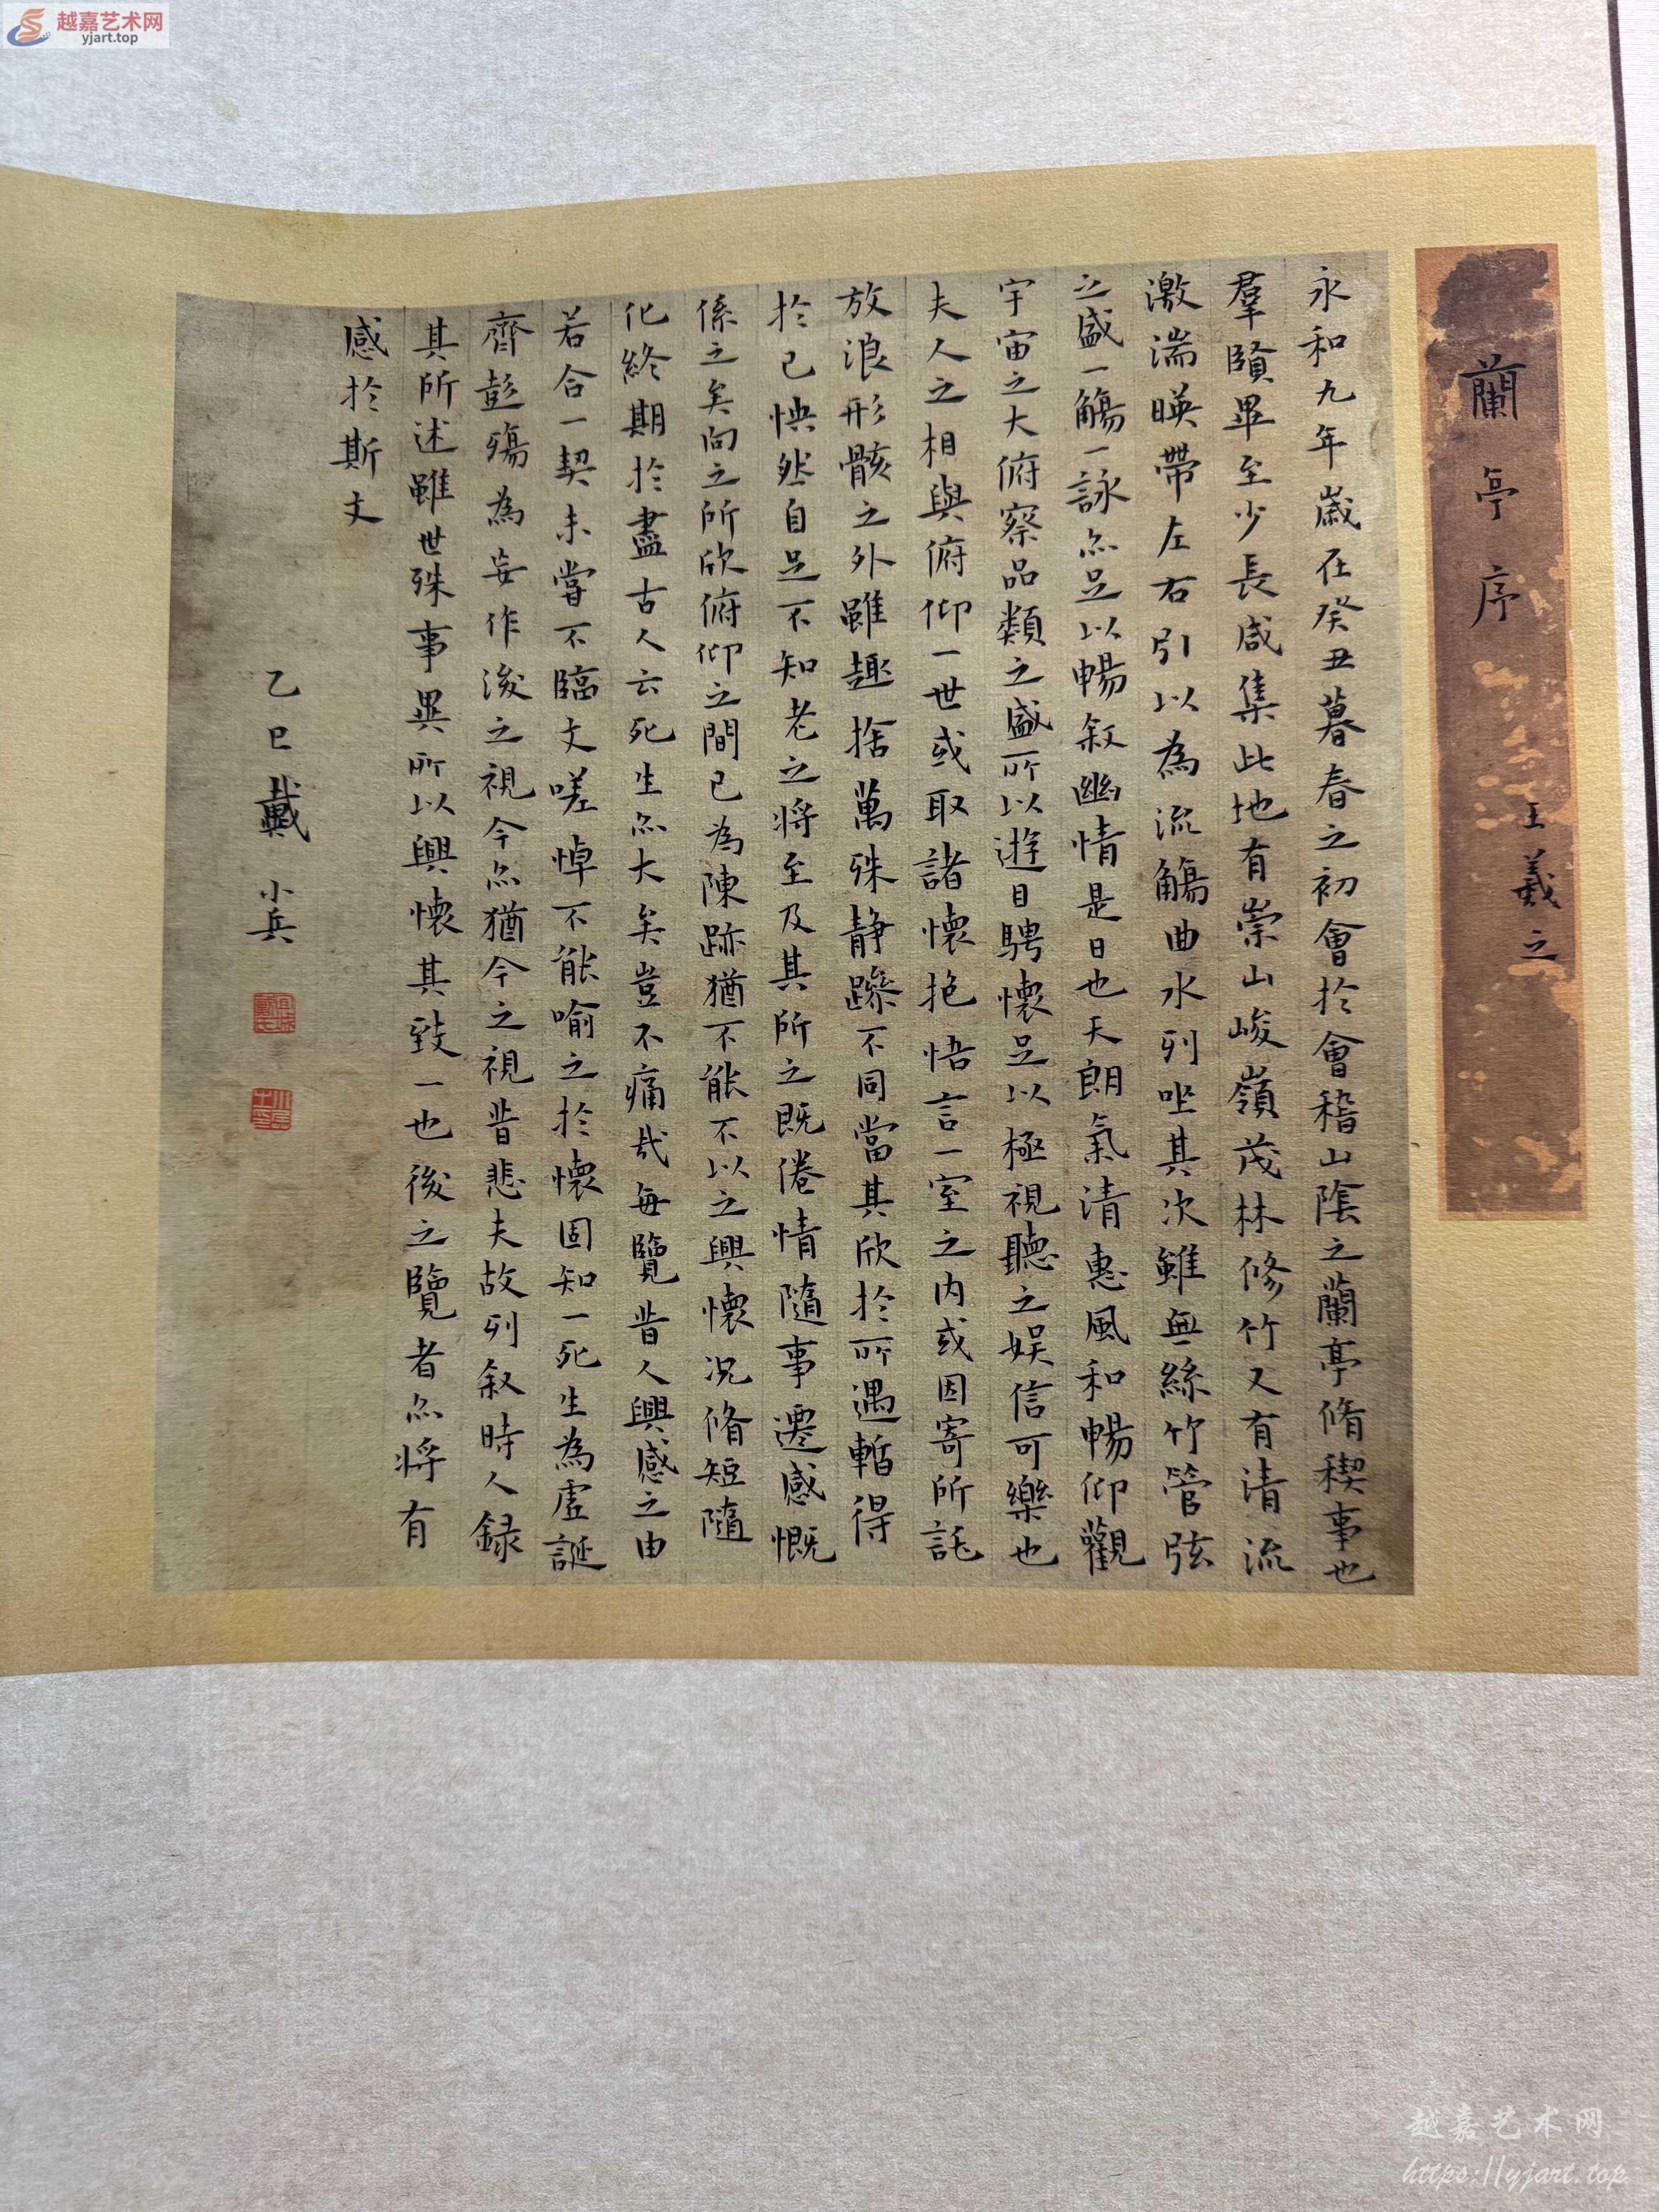 越嘉艺术网
yjart.top
蘭亭序
王羲之
永和九年歲在癸丑暮春之初會於會稽山陰之蘭亭脩稧事也
羣賢畢至少長咸集此地有崇山峻嶺茂林修竹又有清流
激湍暎帶左右引以為流觴曲水列坐其次雖無絲竹管弦
之盛一觴一詠亦足以暢叙幽情是日也天朗氣清惠風和暢仰觀
宇宙之大俯察品類之盛所以遊目騁懷足以極視聽之娱信可樂也
夫人之相與俯仰一世或取諸懷抱悟言一室之内或因寄所託
放浪形骸之外雖趣捨萬殊静躁不同當其欣於所遇暫得
於己怏然自足不知老之将至及其所之既倦情隨事遷感慨
係之矣向之所欣俯仰之間已為陳跡猶不能不以之興懷况脩短隨
化終期於盡古人云死生亦大矣豈不痛哉每覽昔人興感之由
若合一契未嘗不臨文嗟悼不能喻之於懷固知一死生為虚誕
齊彭殤為妄作後之視今亦猶今之視昔悲夫故列叙時人録
其所述雖世殊事異所以興懷其致一也後之覽者亦将有
感於斯文
乙巳戴小兵
越嘉艺术网
https://yjart.top